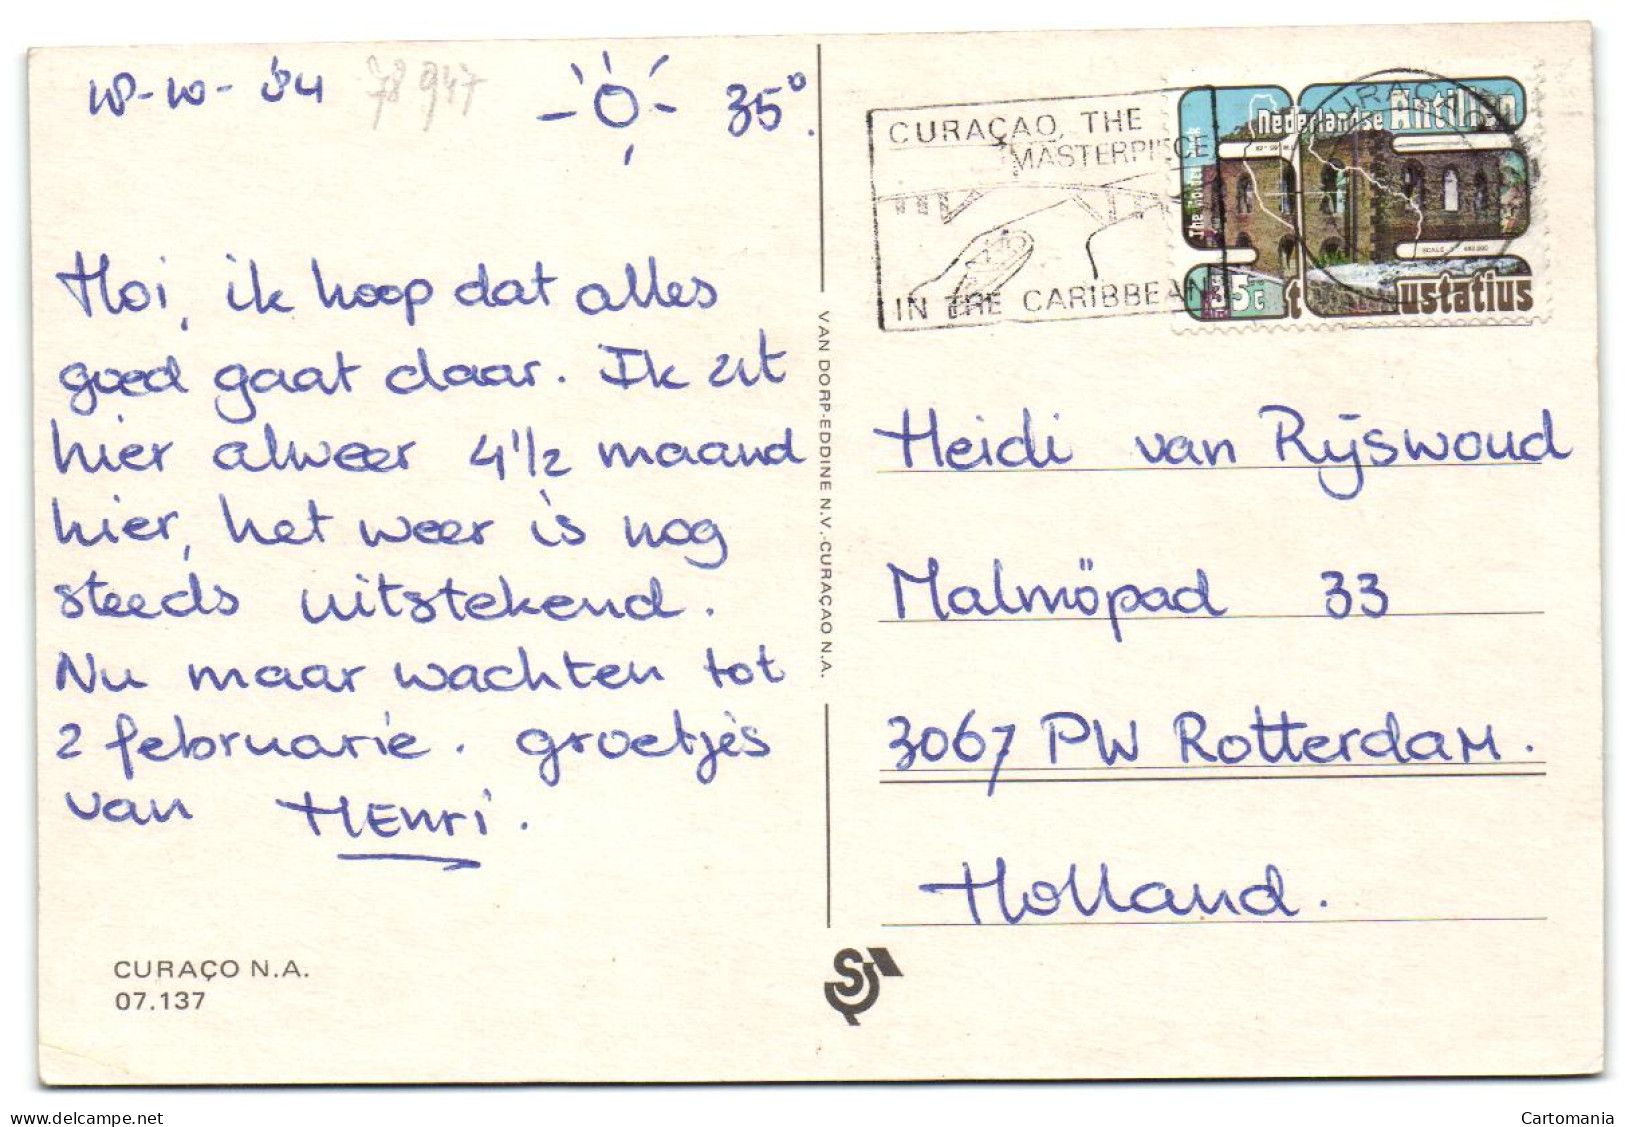 18-10-'84
78947
35°.
Hoi, ik hoop dat alles
goed gaat daar. Ik zit
hier alweer 4 1/2 maand
hier, het weer is nog
steeds uitstekend.
Nu maar wachten tot
2 februarie. groetjes
van HENri.
CURAÇO N.A.
07.137
VAN DORP-EDDINE N.V.-CURAÇAO N.A.
CURAÇAO, THE
MASTERPIECE
IN THE CARIBBEAN
CURAÇA
Nederlandse Antillen
35c
ustatius
Heidi van Rijswoud
Malmöpad 33
3067 PW Rotterdam.
Holland.
delcampe.net
Cartomania